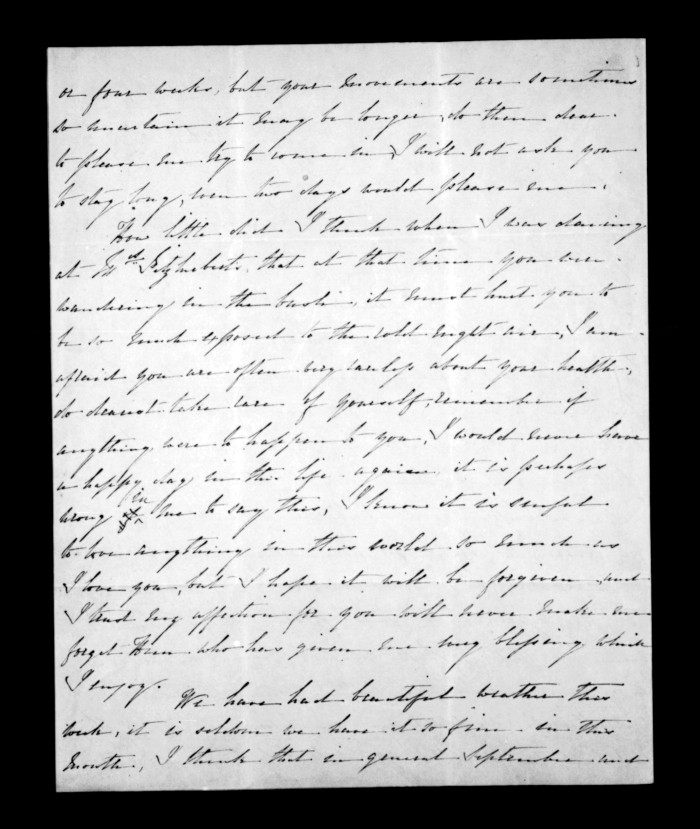 or four weeks, but your movements are sometimes
so uncertain it may be longer, do then dear
to please me try to come in, I will not ask you
to stay long, even two days would please me.
How little did I think when I was dancing
at Mrs Fitzherberts, that at that time you were
wandering in the bush, it must hurt you to
be so much exposed to the cold night air, I am
afraid you are often very careless about your health,
do dearest take care of yourself, remember if
anything were to happen to you, I would never have
a happy day in this life again, it is perhaps
wrong in me to say this, I know it is sinful
to love anything in this world so much as
I love you, but I hope it will be forgiven and
I trust my affection for you will never make me
forget Him who has given me my blessing which
I enjoy.
We have had beautiful weather this
week, it is seldom we have it so fine in this
month, I think that in general September and